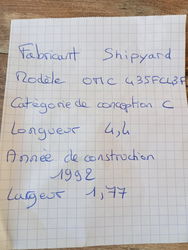 Fabricant Shipyard
Modèle OMC 435FC43F
Catégorie de conception C
Longueur 4,4
Année de construction
1992
Largeur 1,77